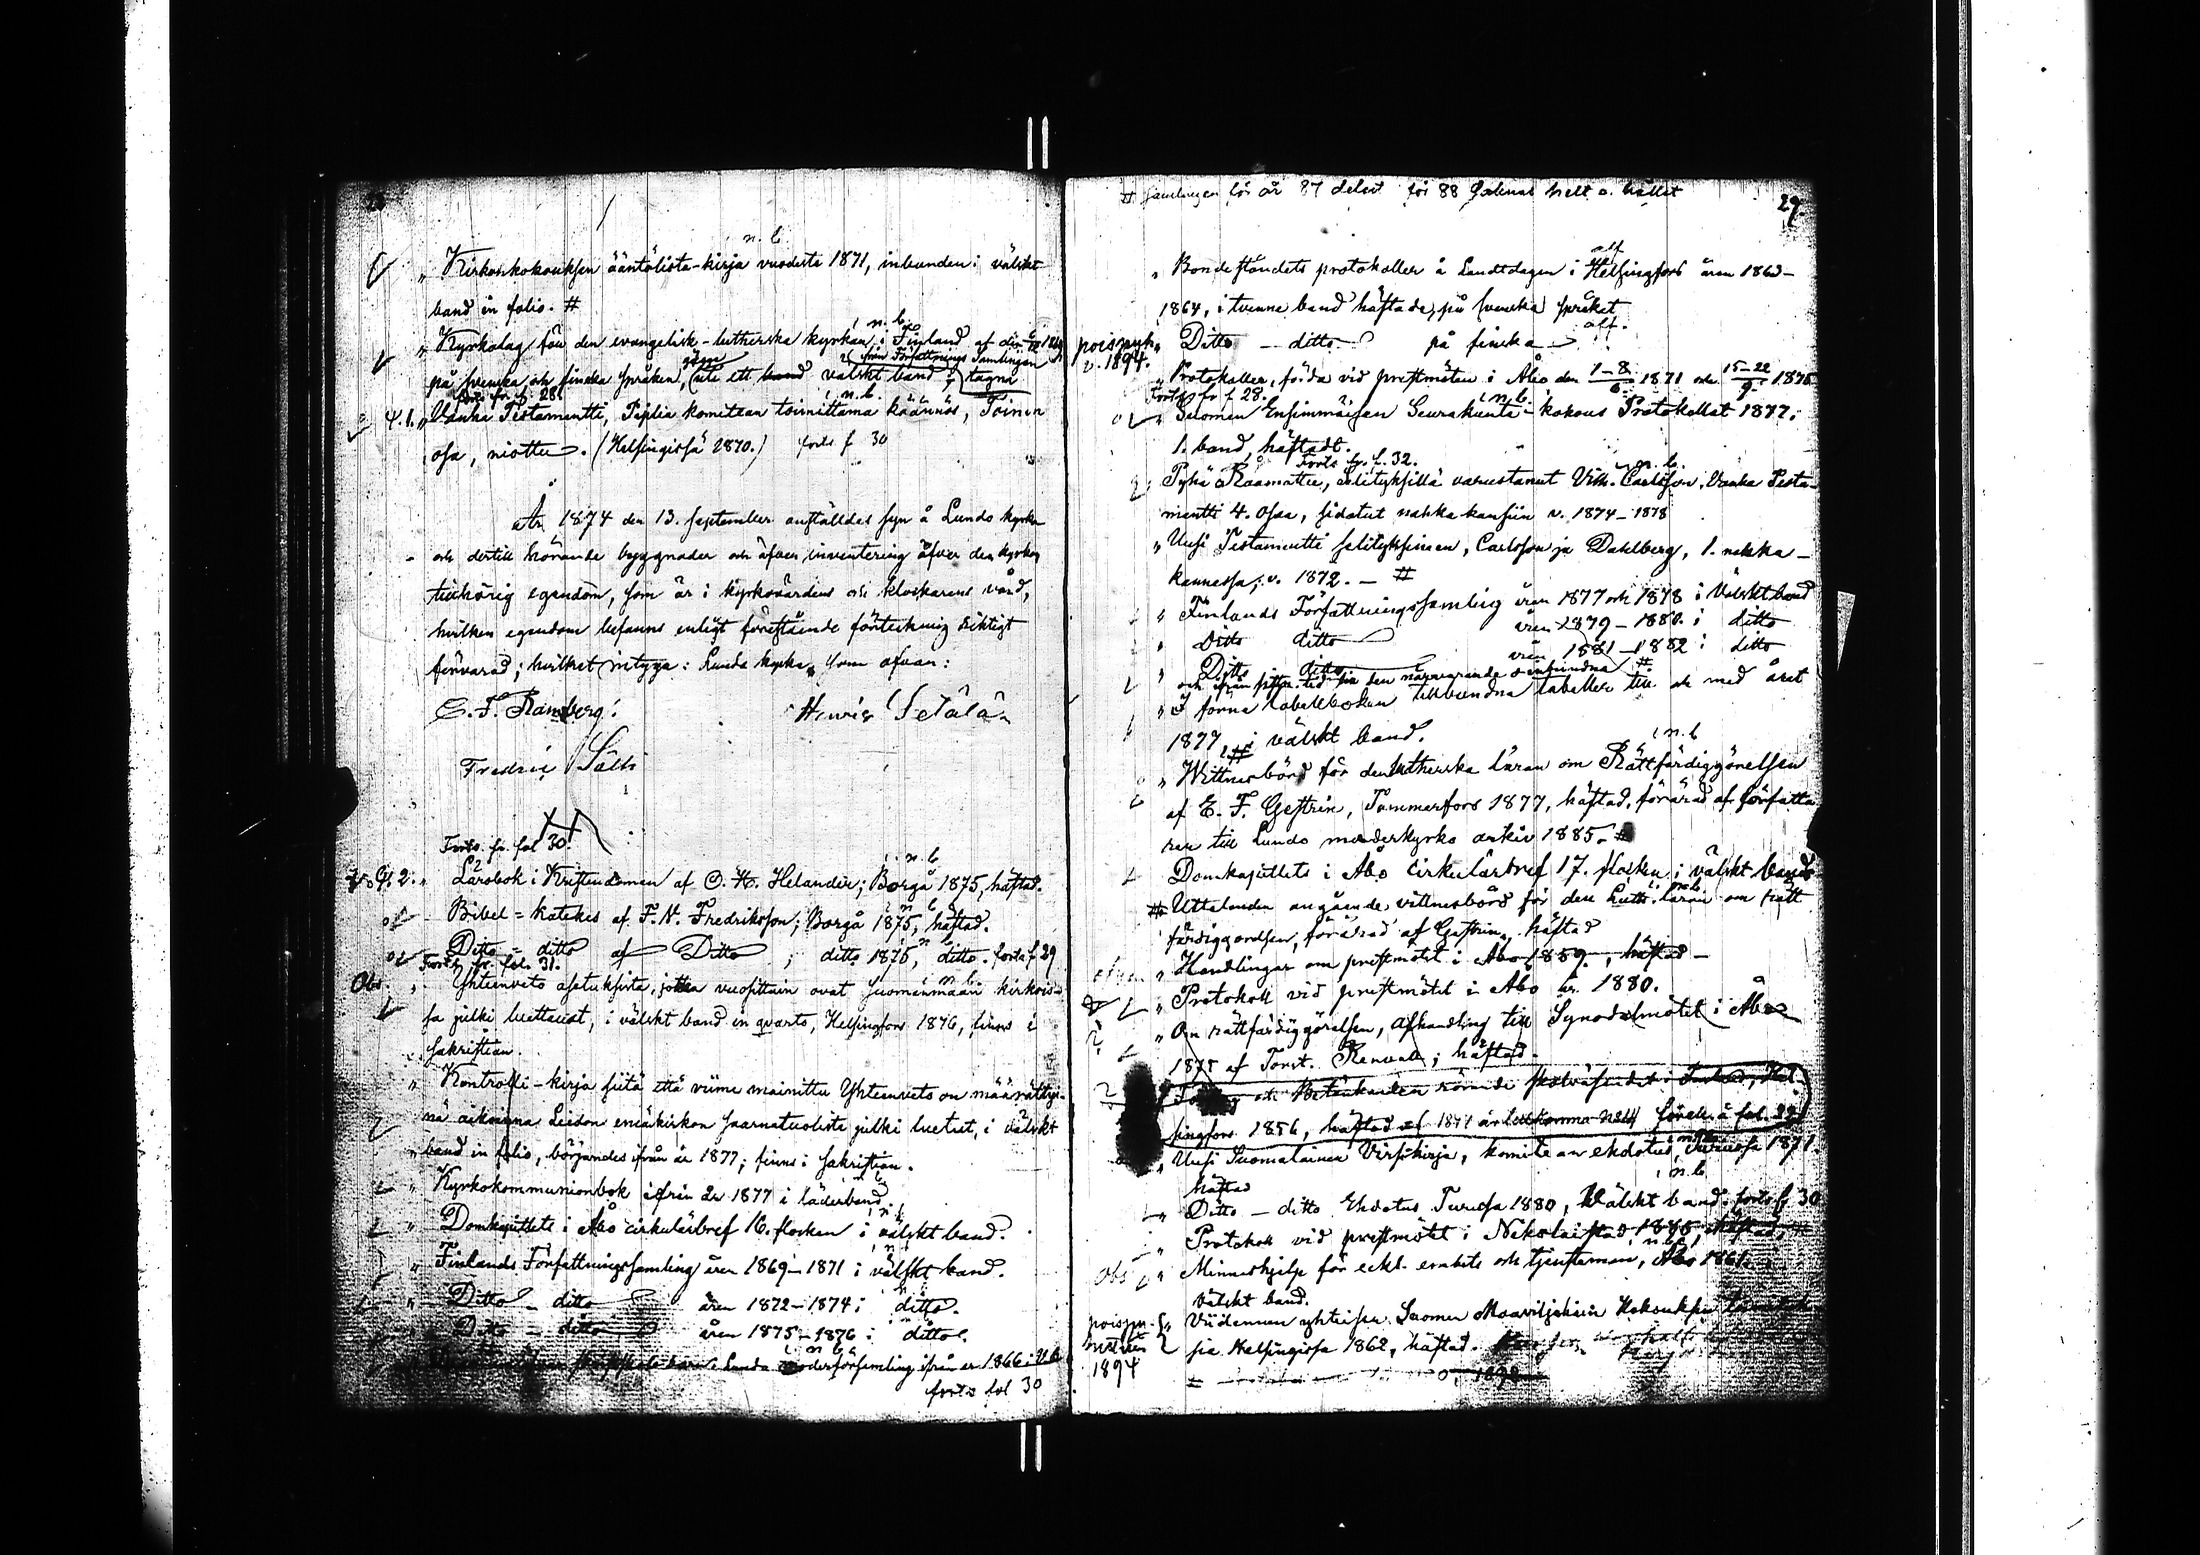 n. b.
" Kirkonkokouksen ääntölista-kirja vuodesta 1871, inbunden i välskt
band in folio. #
n. b.
" Kyrkolag för den evangelisk-lutherska kyrkan i Finland af den
från Författnings Samlingen
på svenska och finska språken, ett band välskt band tagne
forts. fr. f. 28.
n. b.
4. 1. " Vanha Testamentti, Piplia komitean toimittama käännös, Toinen
osa, niottu. (Helsingissä 1870.) forts f 30
År 1874 den 13. September anställdes syn å Lundo kyrka
och dertill hörande byggnader och äfven inventering öfver den kyrkan
tillhörig egendom, som är i kyrkovärdens och klockarens vård,
hvilken egendom befanns enligt förestående förteckning riktigt
förvarad; hvilket intyga: Lundo kyrka, som ofvan:
E. F. Ramberg. Henrik Setälä
Fredric
Forts. fr. fol 30.
n. b.
4. 2. " Lärobok i Kristendomen af O. H. Helander; Borgå 1875, häftad.
n b
Bibel-katekes af F. N. Fredriksson; Borgå 1875, häftad.
Ditto - ditto af Ditto ; ditto 1876, ditto. forts f 29
Forts. fr. fol. 31.
n. b.
Obs. " Yhteenveto asetuksista, jotka vuosittain ovat Suomenmaan kirkois-
sa julki luettavat, i välskt band in quarto, Helsingfors 1876, finns i
sakristian.
" Kontrolli-kirja siitä että viime mainittu Yhteenveto on määrättyi-
nä aikoina Liedon emäkirkon saarnatuolista julki luetut, i välskt
band in folio, börjandes ifrån år 1877; finns i sakristian.
" Kyrkokommunionbok ifrån år 1877 i läderband.
" Domkapitlets i Åbo cirkulärbref 16. flocken i välskt band.
" Finlands Författningssamling åren 1869-1871 i välskt band.
" Ditto - ditto åren 1872-1874 i ditto.
" Ditto - ditto åren 1875-1876 i ditto.
n b
Lundo moderförsamling ifrån år 1866 i
forts fol 30
# Samlingen för år 87 delvis för 88 saknas helt o. hållet
29.
alf
" Bondeståndets protokoller å Landtdagen i Helsingfors åren 1863-
1864, i tvenne band häftade, på svenska språket
alf.
v. 1894. " Ditto - ditto på finska
" Protokoller, förda vid prestmöten i Åbo den 1-8/6 1871 och 15-22/9 1875
Forts fr f 28.
n. b.
" Suomen Ensimmäisen Seurakunta-kokous Protokollat 1877.
1. band, häftadt.
Forts. fr. f. 32.
n. b.
Pyhä Raamattu, selityksillä varustanut Vilh. Carlsson, Vanha Testa-
mentti 4. osaa, sidotut nahka kansiin v. 1874-1878
" Uusi Testamentti selityksineen, Carlsson ja Dahlberg, 1. nahka-
kannessa, v. 1872. - #
" Finlands Författningssamling åren 1877 och 1878 i Välskt band
" Ditto ditto åren 1879-1880 i ditto
" Ditto ditto åren 1881-1882 i ditto
och ifrån tid den närvarande oinbundna #
" I forna tabellboken tillbundna tabeller till och med året
1877, i välskt band.
n. b
" Wittnesbörd för den lutherska läran om Rättfärdiggörelsen
af E. F. Gestrin, Tammerfors 1877, häftad, förärad af författa-
ren till Lundo moderkyrko arkiv 1885. #
Domkapitlets i Åbo cirkulärbref 17. flocken i välskt band
n. b.
# Uttalanden angående vittnesbörd för den Luth. läran om rätt
färdiggörelsen, förärad af Gestrin, häftad
" Handlingar om prestmötet i Åbo 1859, häftad -
" Protokoll vid prestmötet i Åbo år 1880.
" Om rättfärdiggörelsen, afhandling till Synodalmötet i Åbo
1875 af Torst. Renvall; häftad.
och Betänkanden rörande skolväsendet i Hel-
singfors 1856, häftad
" Uusi Suomalainen Virsikirja, komitean ehdotus, Turussa 1871.
n. b
häftad
" Ditto - ditto Ehdotus Turussa 1880, Välskt band. forts f 30
" Protokoll vid prestmötet i Nikolaistad 1885, häftad,
n. b.
Obs " Minneshjelp för eckl. embets och tjensteman, Åbo 1861.
Välskt band.
" Viidennen yhteisen Suomen Maanviljeliäin Kokouksen
sia Helsingissä 1862, häftad.
1894